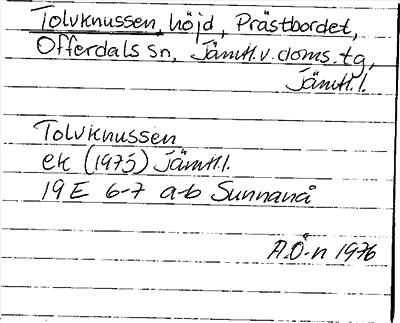 Tolvknussen, höjd, Prästbordet,
Offerdals sn, Jämtl.v.doms.tg,
Jämtl.l.
Tolvknussen
ek (1975) Jämtl.l.
19E 6-7 a-b Sunnanå
A.Ö-n 1976